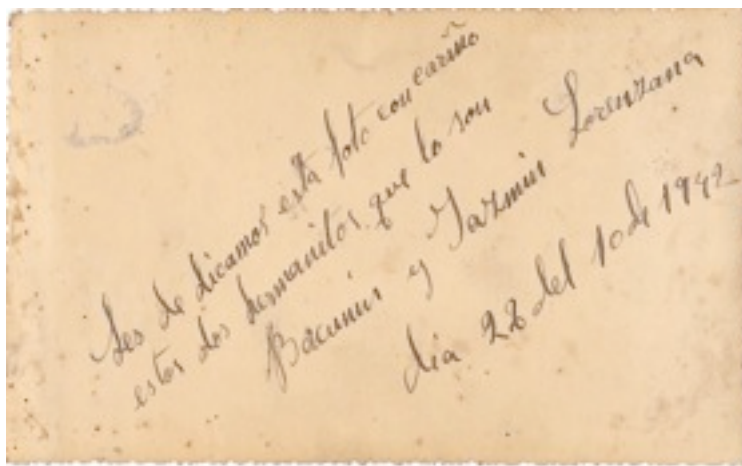 Les de dicamos esta foto con cariño
estos dos hermanitos que lo son
y Jazmin Lorenzana
dia 28 del 10 de 1942